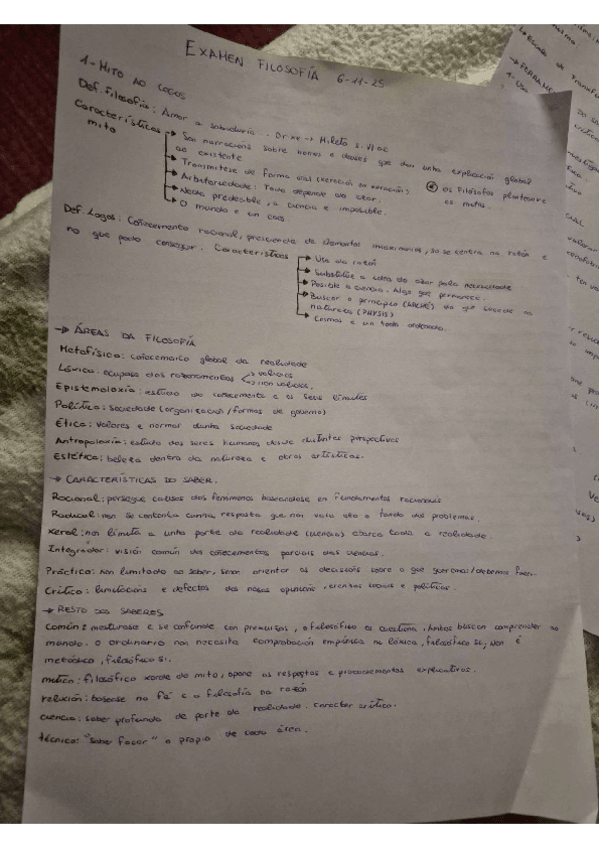 EXAMEN FILOSOFÍA 6-11-25
1- MITO AO LOGOS
Def. Filosofía: Amor a sabiduría. Orixe → Mileto s. VI ac
Características mito
→ Son narracións sobre heroes e deuses que dan unha explicación global
ao existente
→ Transmítese de forma oral (xeración en xeración)
→ Arbitrariedade: Todo depende do azar.
→ Nada predecible, a ciencia é imposible.
→ O mundo é un caos.
os filósofos
os mitos.
Def Logos: Coñecemento racional, prescinde de elementos imaxinarios, só se centra na razón e
no que pode conseguir. Características
→ Uso da razón
→ Substitúe a idea do azar pola necesidade
→ Posible a ciencia. Algo que permanece.
→ Buscar o principio (ARCHÉ) do que sucede na
natureza (PHYSIS)
→ Cosmos é un todo ordenado.
→ ÁREAS DA FILOSOFÍA
Metafísica: coñecemento global da realidade
Lóxica: ocupase dos razoamentos → válidos
→ non válidos.
Epistemoloxía: estudo do coñecemento e os seus límites
Política: sociedade (organización/formas de goberno)
Ética: valores e normas dunha sociedade
Antropoloxía: estudo dos seres humanos desde distintas perspectivas
Estética: beleza dentro da natureza e obras artísticas.
→ CARACTERÍSTICAS DO SABER.
Racional: persegue causas dos fenómenos baseandose en fundamentos racionais
Radical: non se contenta cunha resposta que non vaia ata o fondo dos problemas.
Xeral: non limita a unha parte da realidade (ciencias) abarca toda a realidade
Integrador: visión común dos coñecementos parciais das ciencias.
Práctico: non limitado ao saber, sinon orientar as decisións sobre o que queremos/debemos facer.
Crítico: limitacións e defectos das nosas opinións, crenzas sociais e políticas.
→ RESTO DOS SABERES
Común: mesturase e se confunde con prexuizos, o filosófico os cuestiona. Ambos buscan comprender o
mundo. O ordinario non necesita comprobación empírica na lóxica, filosófico si, non é
metódico, filosófico si.
mítico: filosófico xorde do mito, opone as respostas e procedementos explicativos.
relixión: basease na fé e a filosofía na razón
ciencia: saber profundo de parte da realidade. carácter crítico.
técnico: "saber facer" o propio de cada área.